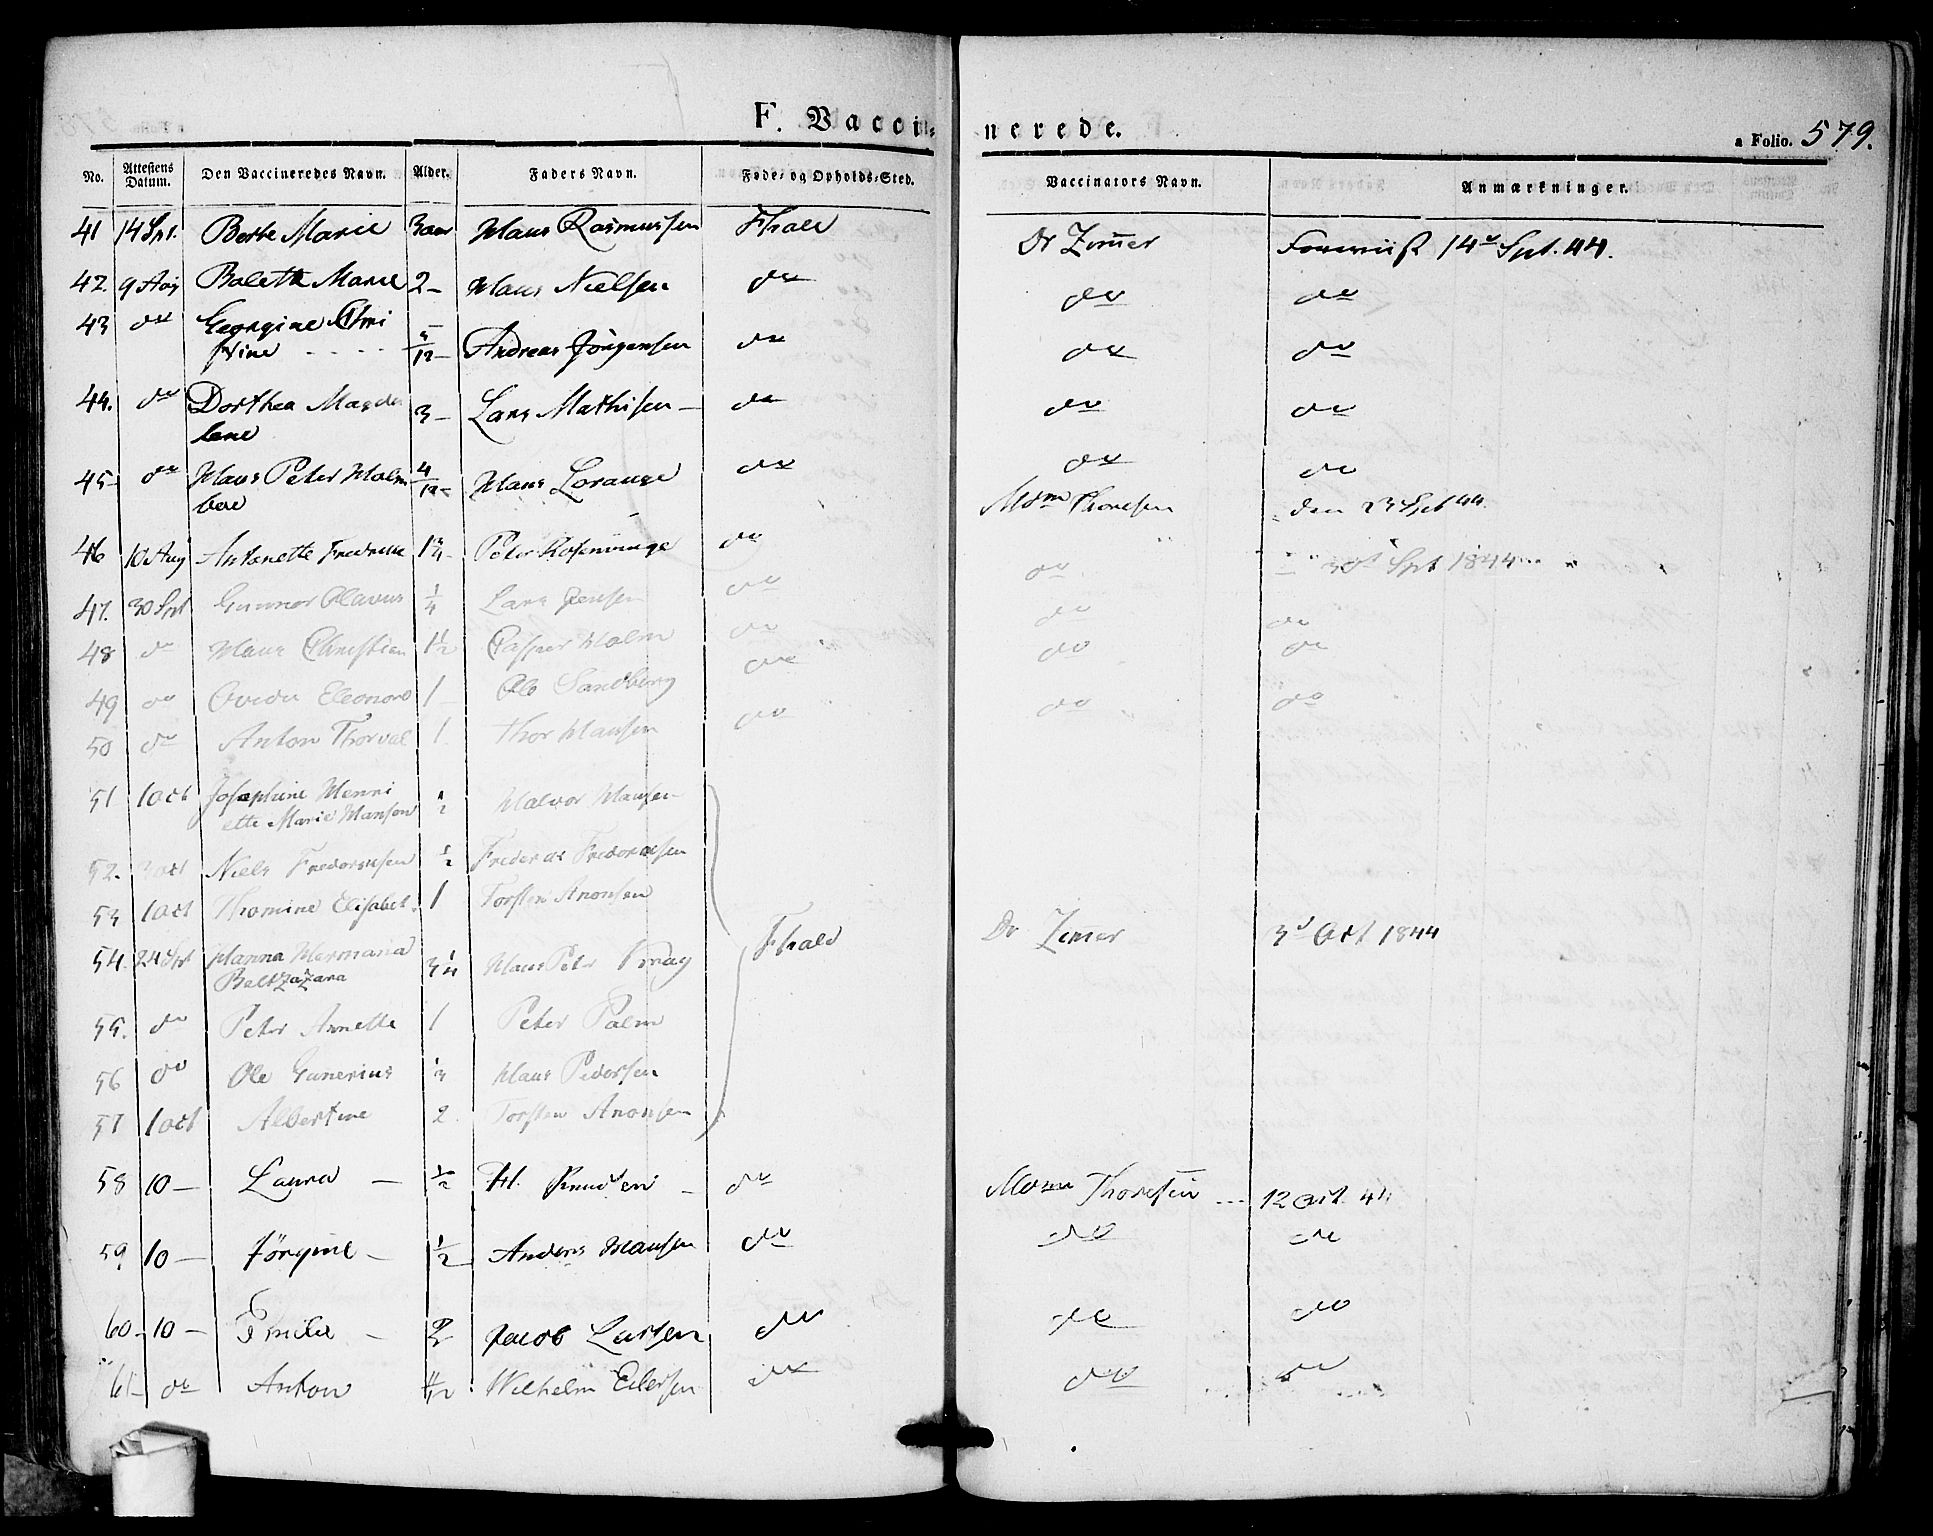 F. Vaccinerede.
a Folio. 579.
No. Attestens Datum. Den Vaccineredes Navn. Alder. Faders Navn. Føde- og Opholds-Sted. Vaccinators Navn. Anmærkninger.
41 14 Spt. Berte Marie 3 aar Hans Rasmussen Fhald Dr Zimer 14d Spt. 44.
42. 9 Aug Bolette Marie 2 – Hans Nielsen do do do
43 do Georgine Chri
stine 5/12 – Andreas Jörgensen do do do
44. do Dorthea Magda
lene 3 – Lars Mathisen – do do do
45 – do Hans Peter Holm
boe 4/12 – Hans Lorange do do do
Mdm Thoresen den 23 Spt 44.
46 10 Aug Antonette Fredrikke 1 3/4 – Peter Rosenvinge do
" " 30d Spt 1844
47. 30 Spt Gunnar Olavus 1/4 Lars Jensen do do do
48 do Hans Christian 1 1/2 Casper Holm do do do
49 do Eleonore 1 Ole Sandberg do do do
50 do Anton Thorval 1 Thor Hansen do
51 1 Oct Josephine Henri
ette Marie Hansen 1/2 Halvor Hansen
52. 3 Oct Niels Frederiksen 1/2 Frederik Frederiksen
53 1 Oct Thomine Elisabet. 1 Torsten Aronsen
54. 24 Spt Hanna Hermana
Baltzazara 3 1/4 Hans Peter Krag Fhald Dr Zimer 3d Oct 1844
55. do Peter Annette 1 Peter Palm
56 do Ole Gunerius 1/3 Hans Pedersen
57 1 Oct Albertine 2 Torsten Aronsen
58 10 – Laura – 1/2 H. Knudsen – do Mdm Thoresen 12 Oct. 44
59 10 – Jörgine – 1/2 Anders Hansen do do do
60 – 10 – Emilie – Jacob Larsen do do do
61 – do Anton 11/12 Wilhelm Eilersen do do do